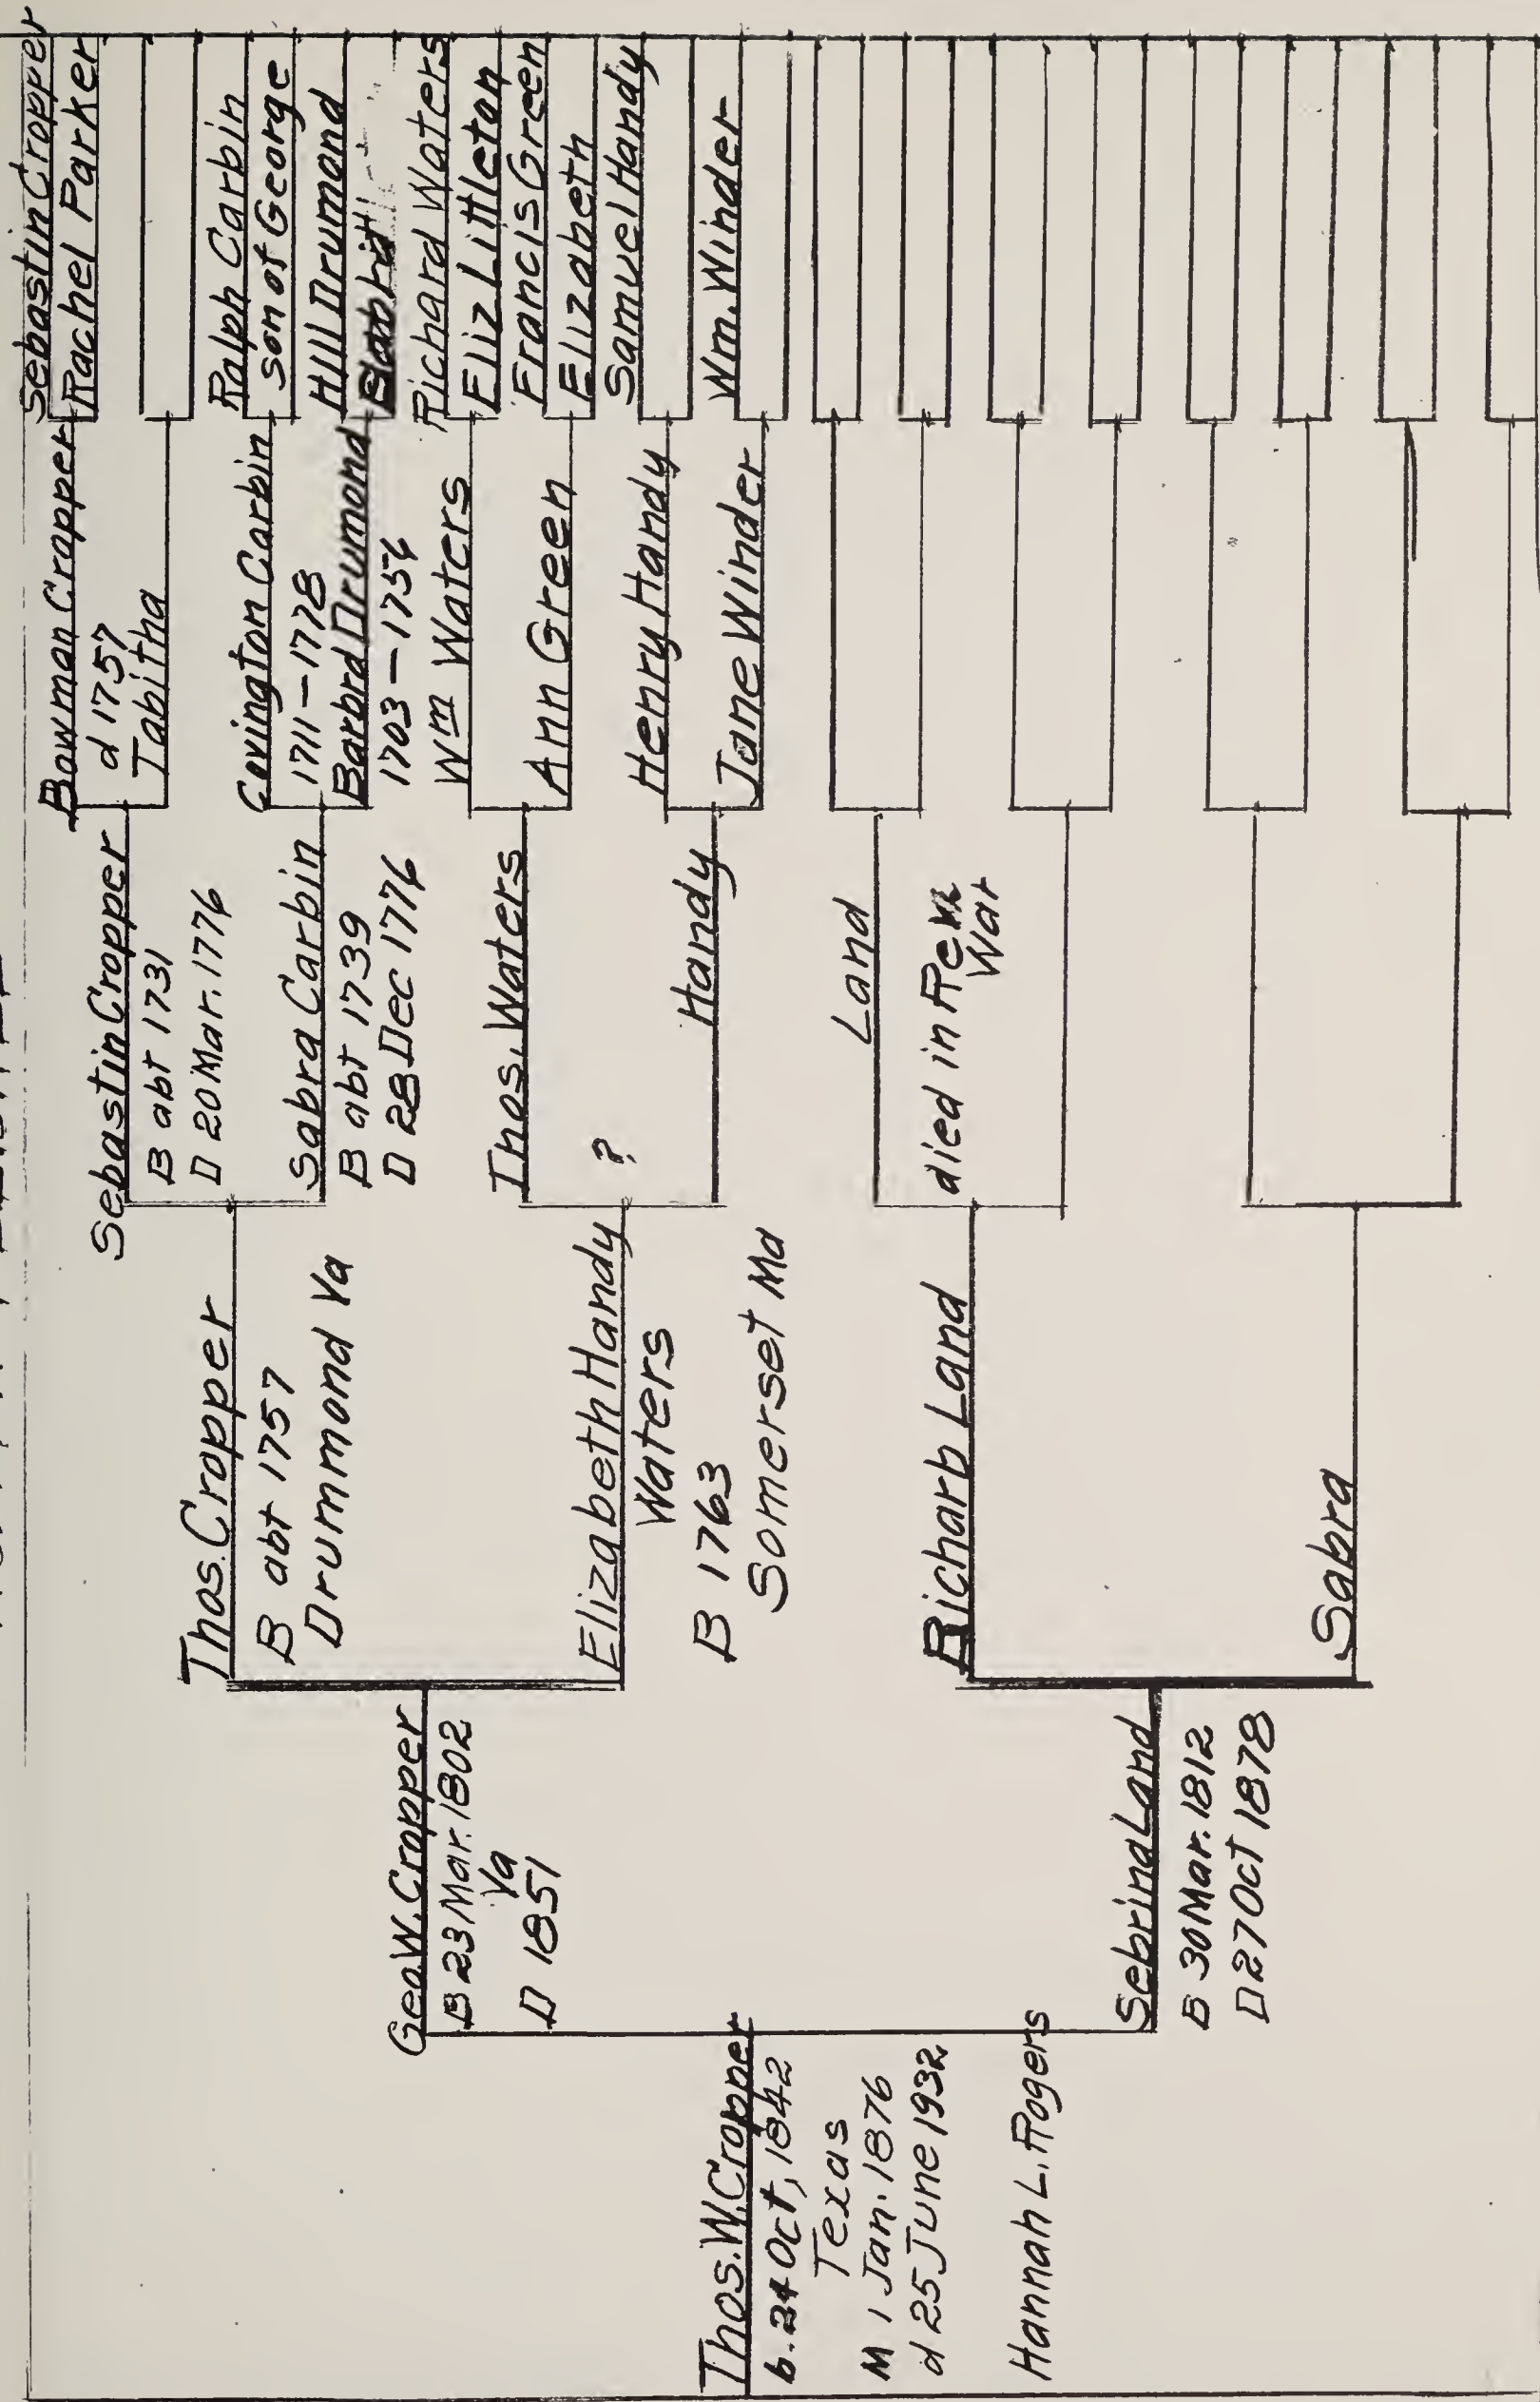 Thos. W. Cropper
b. 24 Oct, 1842
Texas
M 1 Jan. 1876
d 25 June 1932
Hannah L. Rogers
Geo W. Cropper
B 23 Mar. 1802
Va
D 1851
Sebrina Land
B 30 Mar. 1812
D 27 Oct 1878
Thos. Cropper
B abt 1757
Drummond Va
Elizabeth Handy
Waters
B 1763
Somerset Md
Richarb Land
Sabra
Sebastin Cropper
B abt 1731
D 20 Mar. 1776
Sabra Carbin
B abt 1739
D 28 Dec 1776
Thos. Waters
?
Handy
Land
died in Rev
War
Bowman Cropper
d 1757
Tabitha
Covington Carbin
1711-1778
Barbra Drumond
1703-1756
Wm Waters
Ann Green
Henry Handy
Jane Winder
Sebastin Cropper
Rachel Parker
Ralph Carbin
son of George
Hill Drumand
Richard Waters
Eliz Littleton
Francis Green
Elizabeth
Samuel Handy
Wm. Winder